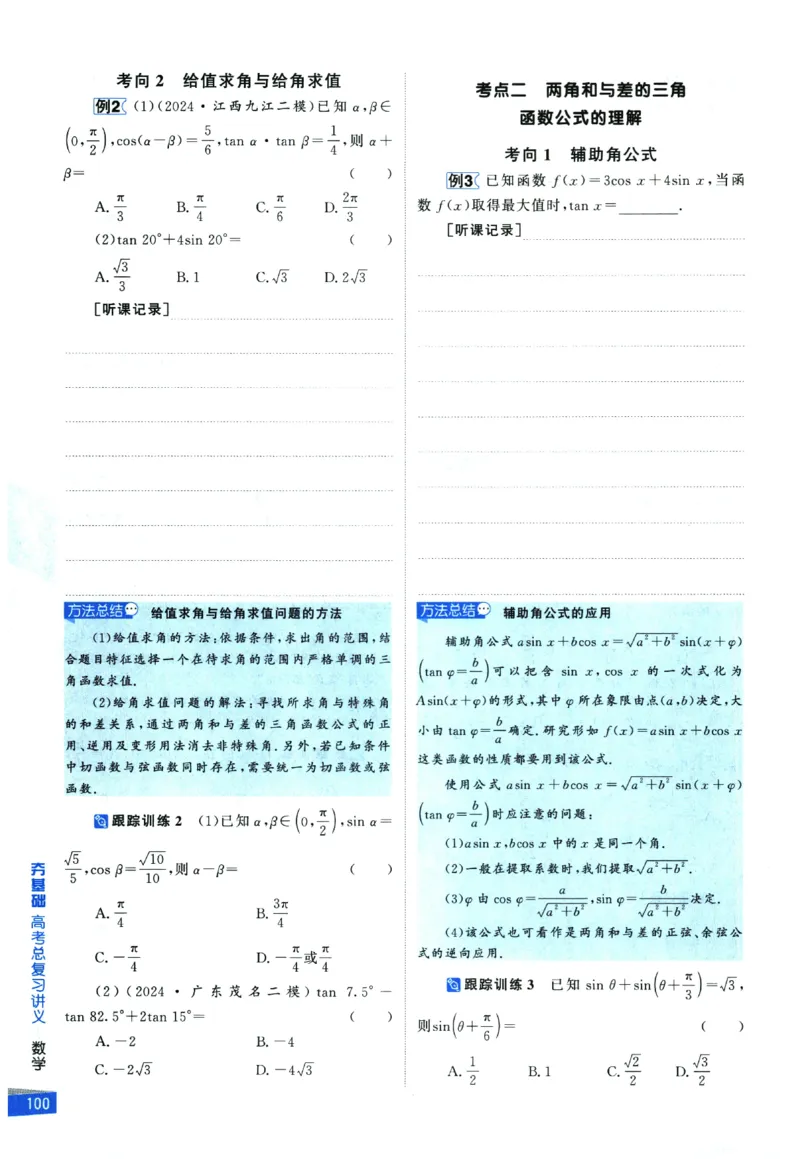 考向 2 给值求角与给角求值
例2 (1)(2024·江西九江二模)已知 α,β∈
(0,π/2),cos(α-β)=5/6,tan α·tan β=1/4,则 α+
β= ( )
A. π/3 B. π/4 C. π/6 D. 2π/3
(2)tan 20°+4sin 20°= ( )
A. √3/3 B. 1 C. √3 D. 2√3
[听课记录]
方法总结 给值求角与给角求值问题的方法
(1)给值求角的方法:依据条件,求出角的范围,结
合题目特征选择一个在待求角的范围内严格单调的三
角函数求值.
(2)给角求值问题的解法:寻找所求角与特殊角
的和差关系,通过两角和与差的三角函数公式的正
用、逆用及变形用法消去非特殊角.另外,若已知条件
中切函数与弦函数同时存在,需要统一为切函数或弦
函数.
跟踪训练 2 (1)已知 α,β∈(0,π/2),sin α=
√5/5,cos β=√10/10,则 α-β= ( )
A. π/4 B. 3π/4
C. -π/4 D. -π/4或π/4
(2)(2024·广东茂名二模)tan 7.5°-
tan 82.5°+2tan 15°= ( )
A. -2 B. -4
C. -2√3 D. -4√3
考点二 两角和与差的三角
函数公式的理解
考向 1 辅助角公式
例3 已知函数 f(x)=3cos x+4sin x,当函
数 f(x)取得最大值时,tan x=________.
[听课记录]
方法总结 辅助角公式的应用
辅助角公式 asin x+bcos x=√(a²+b²) sin(x+φ)
(tan φ=b/a)可以把含 sin x,cos x 的一次式化为
Asin(x+φ)的形式,其中 φ 所在象限由点(a,b)决定,大
小由 tan φ=b/a确定.研究形如 f(x)=asin x+bcos x
这类函数的性质都要用到该公式.
使用公式 asin x+bcos x=√(a²+b²) sin(x+φ)
(tan φ=b/a)时应注意的问题:
(1)asin x,bcos x 中的 x 是同一个角.
(2)一般在提取系数时,我们提取√(a²+b²).
(3)φ 由 cos φ=a/√(a²+b²),sin φ=b/√(a²+b²)决定.
(4)该公式也可看作是两角和与差的正弦、余弦公
式的逆向应用.
跟踪训练 3 已知 sin θ+sin(θ+π/3)=√3,
则sin(θ+π/6)= ( )
A. 1/2 B. 1 C. √2/2 D. √3/2
夯基础 高考总复习讲义 数学
100